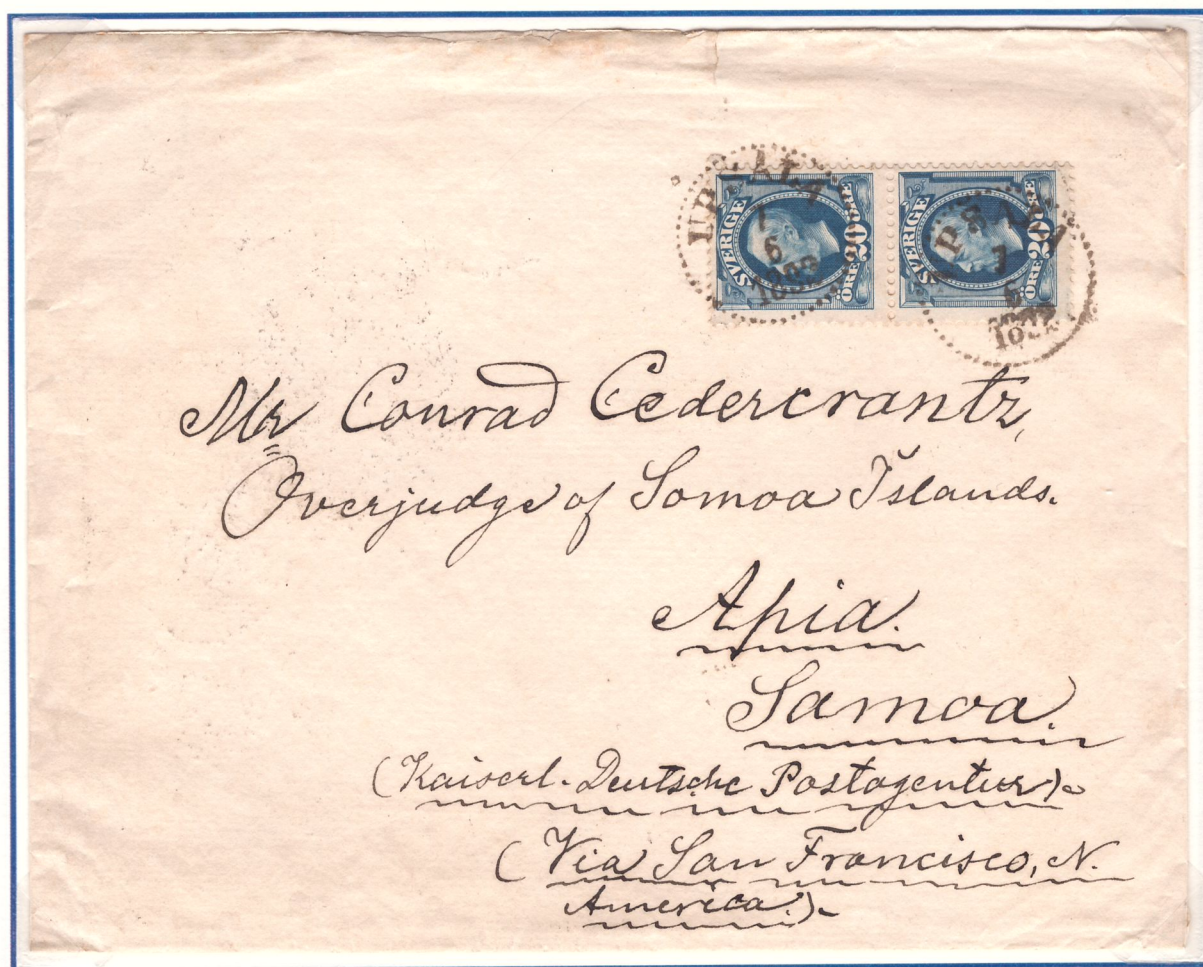 UPSALA
7
6
1892
SVERIGE
20
ÖRE ÖRE
UPSALA
7
6
1892
SVERIGE
20
ÖRE ÖRE
Mr Conrad Cedercrantz,
Overjudge of Samoa Islands.
Apia.
Samoa.
(Kaiserl. Deutsche Postagentur)
(Via San Francisco, N.
America.)